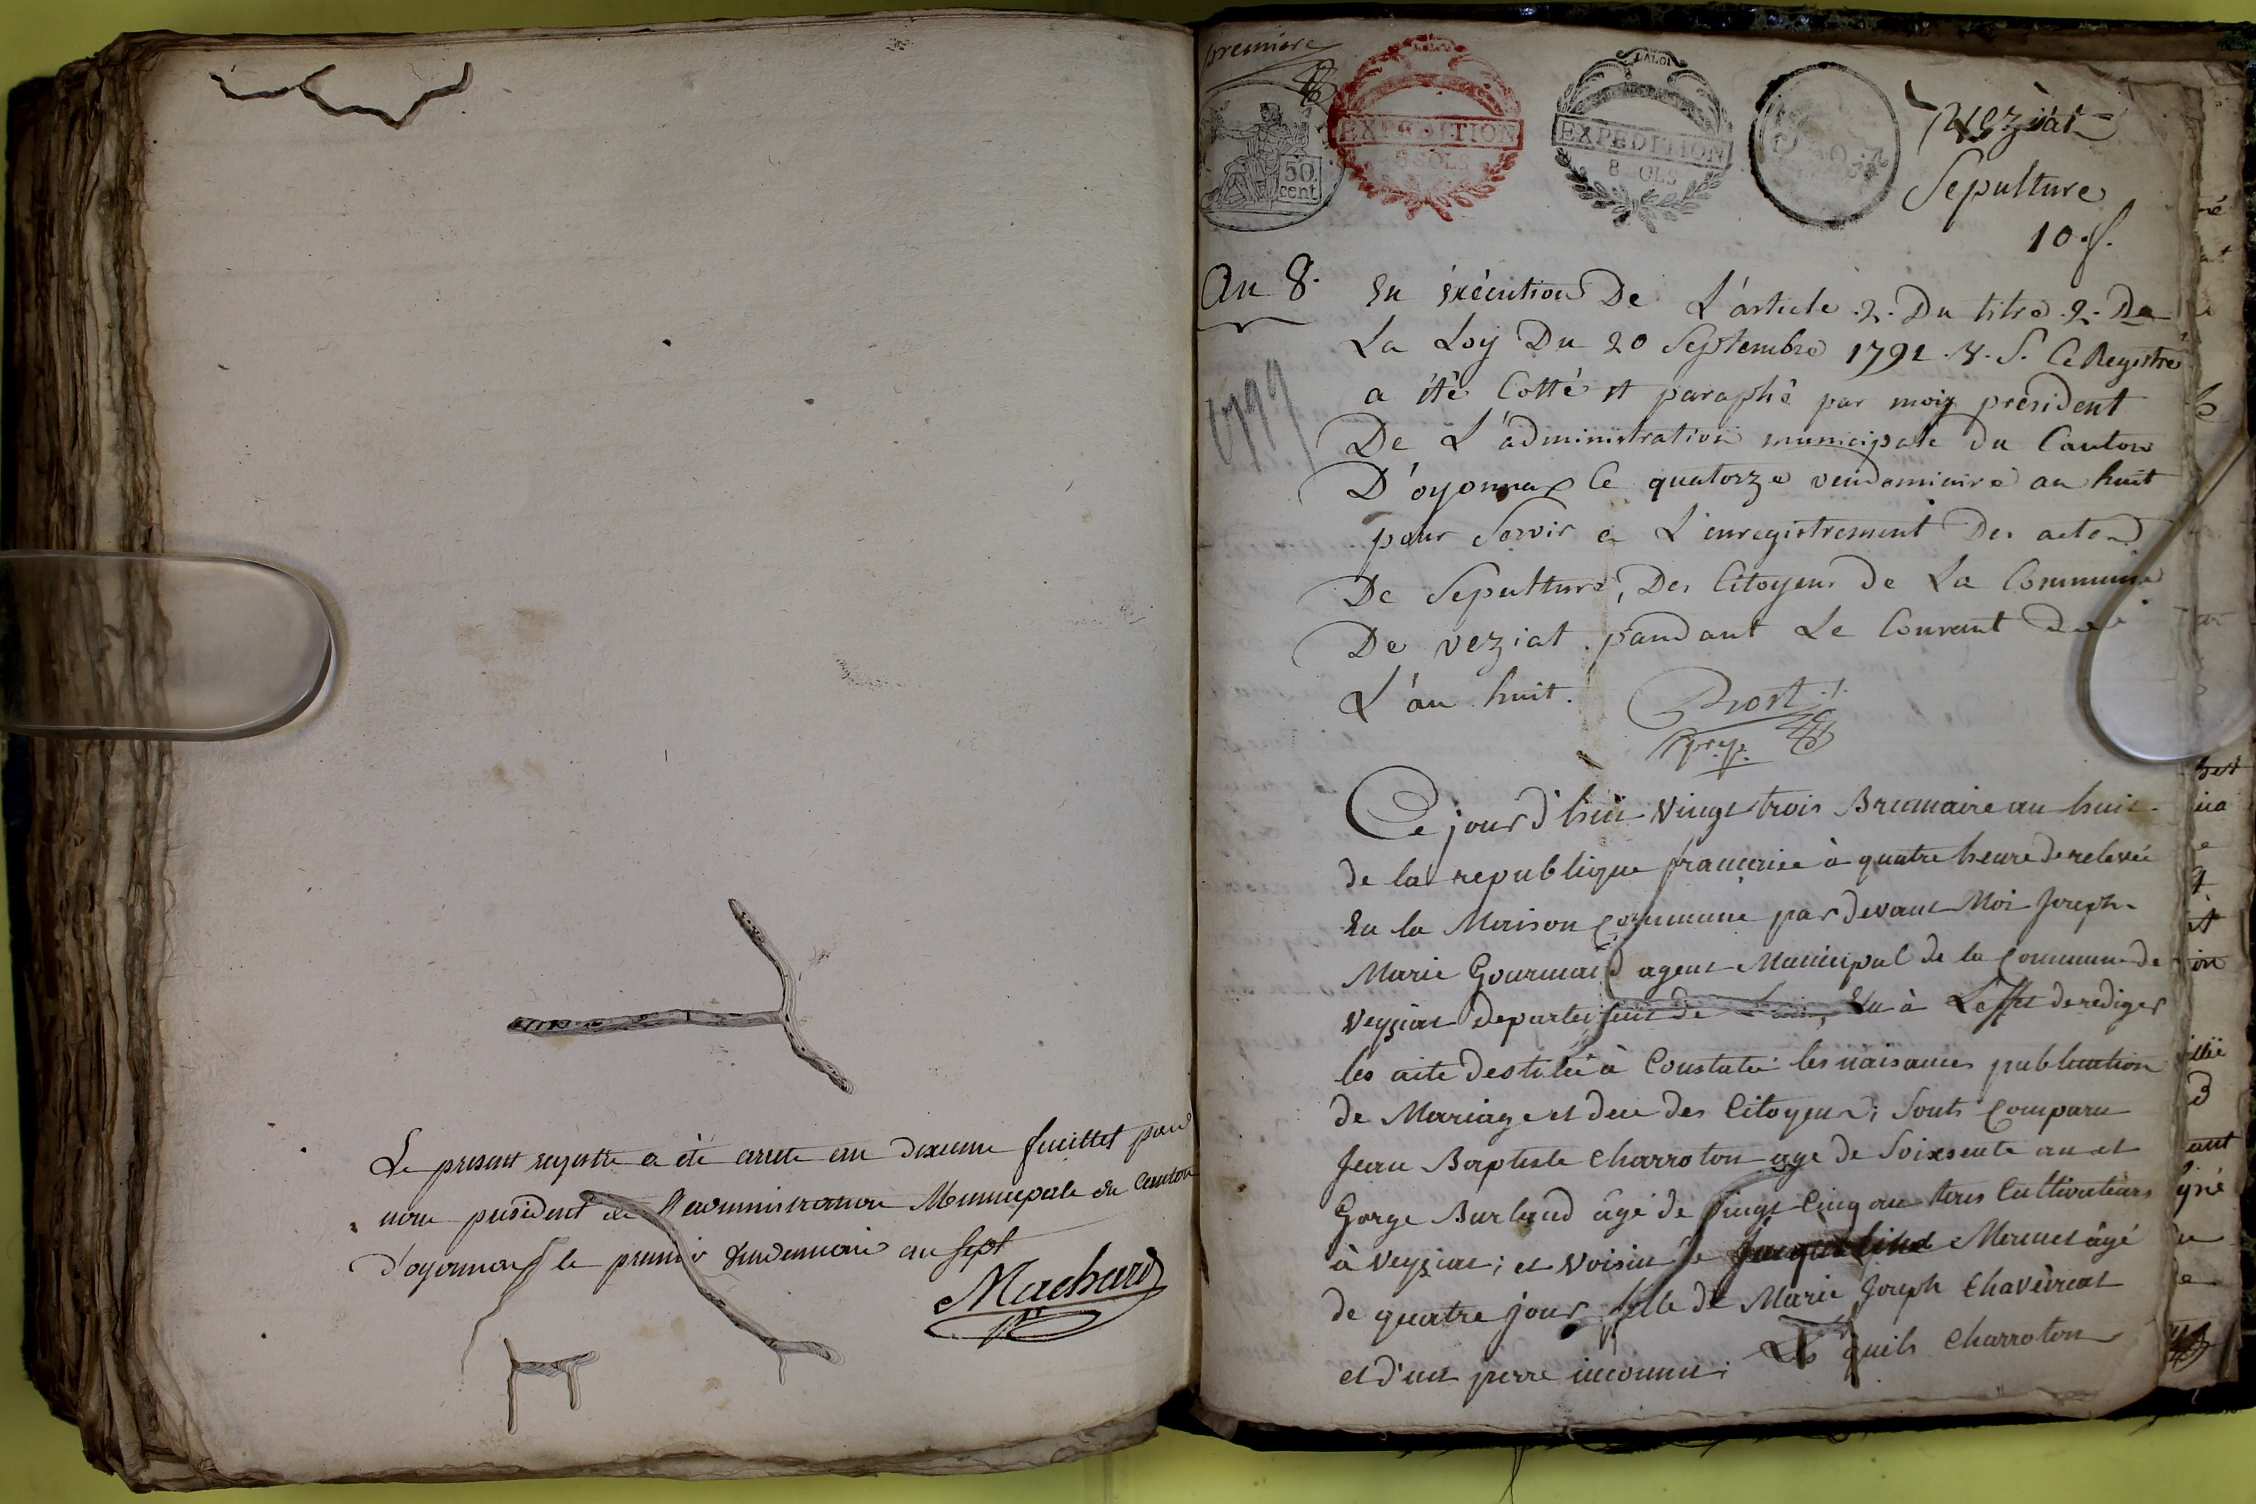 Le present registre a été arreté au dixieme feuillet par
nous president de l'administration Municipale du Canton
D'oyonnax le premier vendemiaire an sept
Machard
premiere
50.
cent
EXPEDITION
8 SOLS
LA LOI
EXPEDITION
8 SOLS
Veziat
Sepulture
10 f.
An 8.
1799
En éxécution De L'article .2. Du titre .2. De
La Loy Du 20 Septembre 1792 .V.S. Ce Registre
a été Cotté et paraphé par moy président
De L'administration municipale du Canton
D'oyonnax Ce quatorze vendemiaire an huit
pour Servir a L'enregistrement Des actes
De Sepulture, Des Citoyens de La Commune
De veziat pandant Le Courant de
L'an huit.
Prost
Ce jourd'hui vingt trois Brumaire an huit
de la republique francaise à quatre heure de relevée
En la Maison Commune par devant Moi Joseph
Marie Gourmand agent Municipal de la Commune de
Veyziat departement de L'ain, Elu à L'effet de rediger
les acte destiné à Constater les naisances publication
de Mariage et deces des Citoyens; Sont Comparu
Jean Baptiste Charroton agé de Soixsente an et
Gorge Burland âgé de vingt Cinq an tous Cultivateurs
à Veyziat; et Voisin de Mermet âgé
de quatre jour fille de Marie Joseph Chaveiriat
et d'un perre inconnu; Les quels Charroton